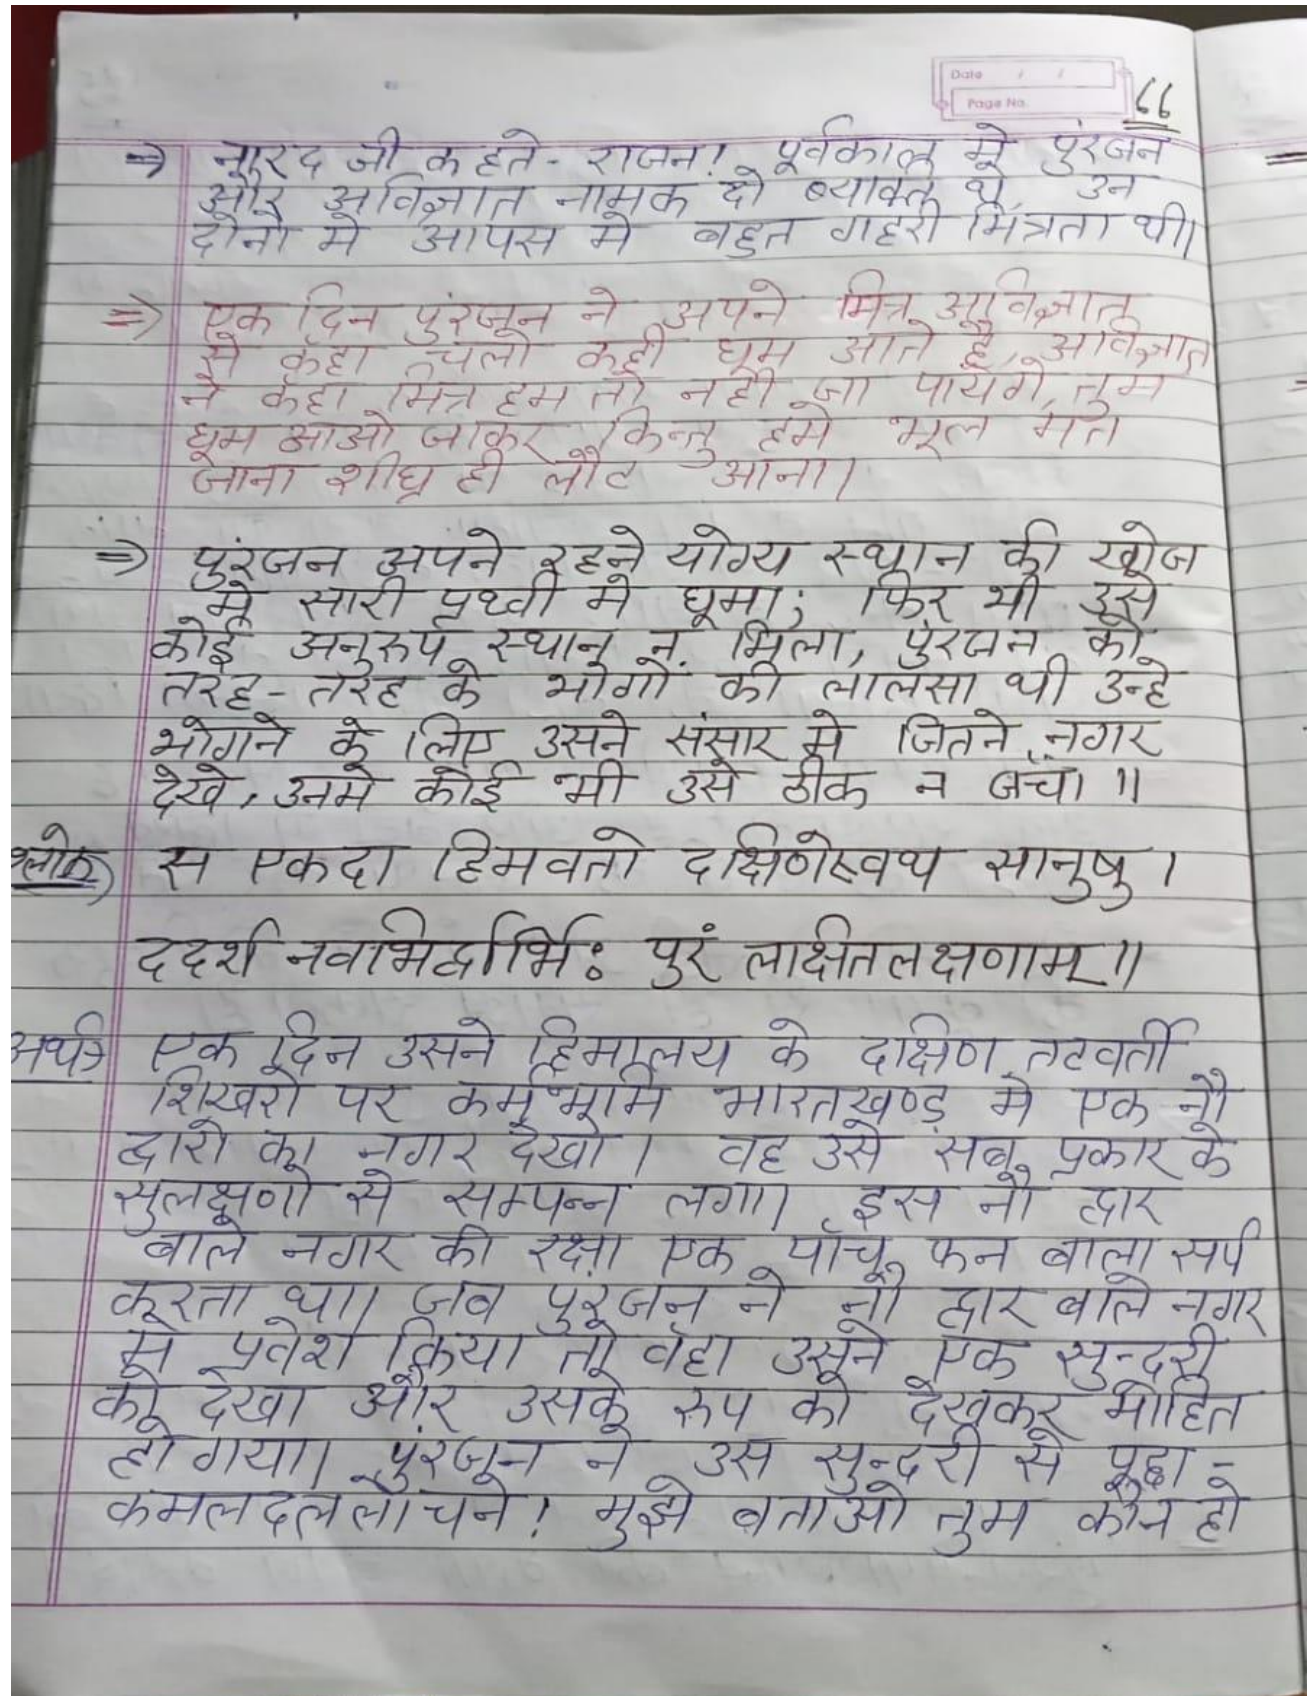 Date / /
Page No.
66
⇒ नारद जी कहते - राजन! पूर्वकाल मे पुरंजन
और अविज्ञात नामक दो ब्याक्ति थे उन
दोनो मे आपस मे बहुत गहरी मित्रता थी।
⇒ एक दिन पुरंजन ने अपने मित्र अविज्ञात
से कहा चलो कही घूम आते है, अविज्ञात
ने कहा मित्र हम तो नही जा पायेगे, तुम
घूम आओ जाकर किन्तु हमे भूल मत
जाना शीघ्र ही लौट आना।
⇒ पुरंजन अपने रहने योग्य स्थान की खोज
मे सारी प्रथ्वी मे घूमा; फिर भी उसे
कोई अनुरुप स्थान न मिला, पुरंजन को
तरह - तरह के भोगो की लालसा थी उन्हे
भोगने के लिए उसने संसार मे जितने नगर
देखे, उनमे कोई भी उसे ठीक न जचा ॥
श्लोक) स एकदा हिमवतो दक्षिणेस्वथ सानुषु ।
ददर्श नवभिर्द्वार्भिः पुरं लक्षितलक्षणाम् ॥
अर्थ→ एक दिन उसने हिमालय के दक्षिण तटवर्ती
शिखरो पर कर्मभूमि भारतखण्ड मे एक नौ
द्वारो का नगर देखा। वह उसे सब प्रकार के
सुलक्षणो से सम्पन्न लगा। इस नौ द्वार
बाले नगर की रक्षा एक पाँच फन बाला सर्प
करता था। जब पुरंजन ने नौ द्वार बाले नगर
मे प्रवेश किया तो वहा उसने एक सुन्दरी
को देखा और उसके रुप को देखकर मोहित
हो गया। पुरंजन ने उस सुन्दरी से पूछा -
कमलदललोचने! मुझे बताओ तुम कौन हो